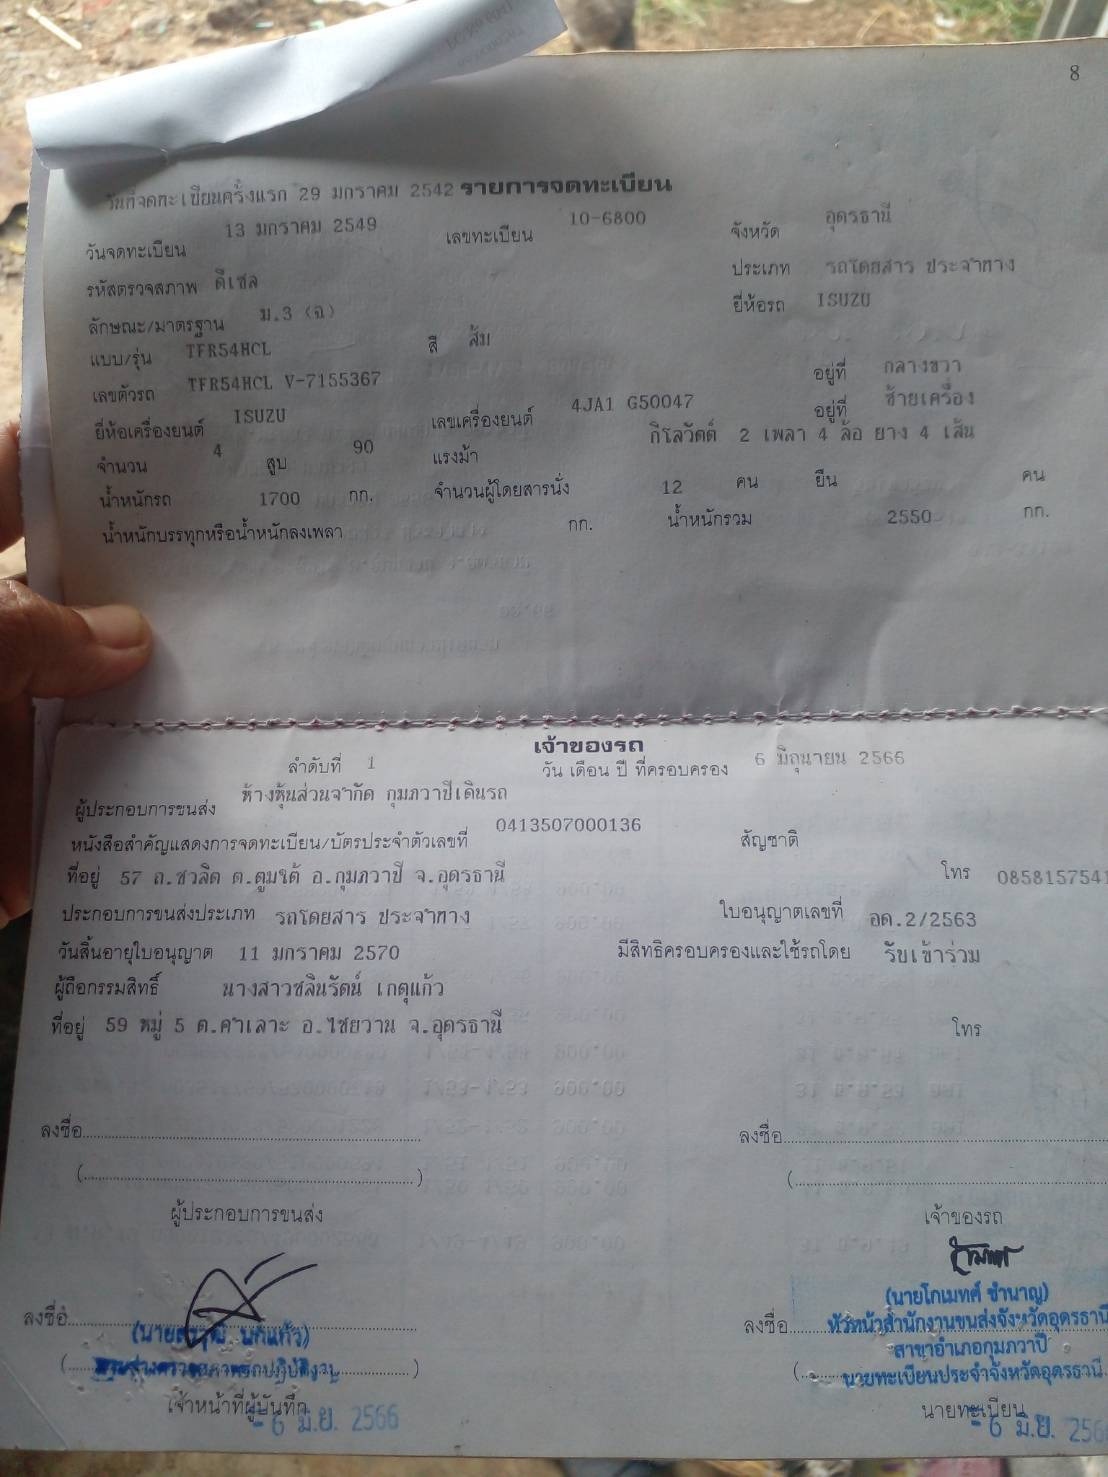 8
วันที่จดทะเบียนครั้งแรก 29 มกราคม 2542 รายการจดทะเบียน
วันจดทะเบียน 13 มกราคม 2549 เลขทะเบียน 10-6800 จังหวัด อุดรธานี
รหัสตรวจสภาพ ดีเซล ประเภท รถโดยสาร ประจำทาง
ลักษณะ/มาตรฐาน ม.3 (ฉ) ยี่ห้อรถ ISUZU
แบบ/รุ่น TFR54HCL สี ส้ม
เลขตัวรถ TFR54HCL V-7155367 อยู่ที่ กลางขวา
ยี่ห้อเครื่องยนต์ ISUZU เลขเครื่องยนต์ 4JA1 G50047 อยู่ที่ ซ้ายเครื่อง
จำนวน 4 สูบ 90 แรงม้า กิโลวัตต์ 2 เพลา 4 ล้อ ยาง 4 เส้น
น้ำหนักรถ 1700 กก. จำนวนผู้โดยสารนั่ง 12 คน ยืน คน
น้ำหนักบรรทุกหรือน้ำหนักลงเพลา กก. น้ำหนักรวม 2550 กก.
เจ้าของรถ
ลำดับที่ 1 วัน เดือน ปี ที่ครอบครอง 6 มิถุนายน 2566
ผู้ประกอบการขนส่ง ห้างหุ้นส่วนจำกัด กุมภวาปีเดินรถ
หนังสือสำคัญแสดงการจดทะเบียน/บัตรประจำตัวเลขที่ 0413507000136 สัญชาติ
ที่อยู่ 57 ถ.ชวลิต ต.ตูมใต้ อ.กุมภวาปี จ.อุดรธานี โทร 0858157541
ประกอบการขนส่งประเภท รถโดยสาร ประจำทาง ใบอนุญาตเลขที่ อด.2/2563
วันสิ้นอายุใบอนุญาต 11 มกราคม 2570 มีสิทธิครอบครองและใช้รถโดย รับเข้าร่วม
ผู้ถือกรรมสิทธิ์ นางสาวชลินรัตน์ เกตุแก้ว
ที่อยู่ 59 หมู่ 5 ต.คำเลาะ อ.ไชยวาน จ.อุดรธานี โทร
ลงชื่อ ลงชื่อ
( ) (
ผู้ประกอบการขนส่ง เจ้าของรถ
ลงชื่อ ลงชื่อ
(นายโกเมทศ์ ชำนาญ)
หัวหน้าสำนักงานขนส่งจังหวัดอุดรธานี
สาขาอำเภอกุมภวาปี
นายทะเบียนประจำจังหวัดอุดรธานี
เจ้าหน้าที่ผู้บันทึก นายทะเบียน
- 6 มิ.ย. 2566 - 6 มิ.ย. 256